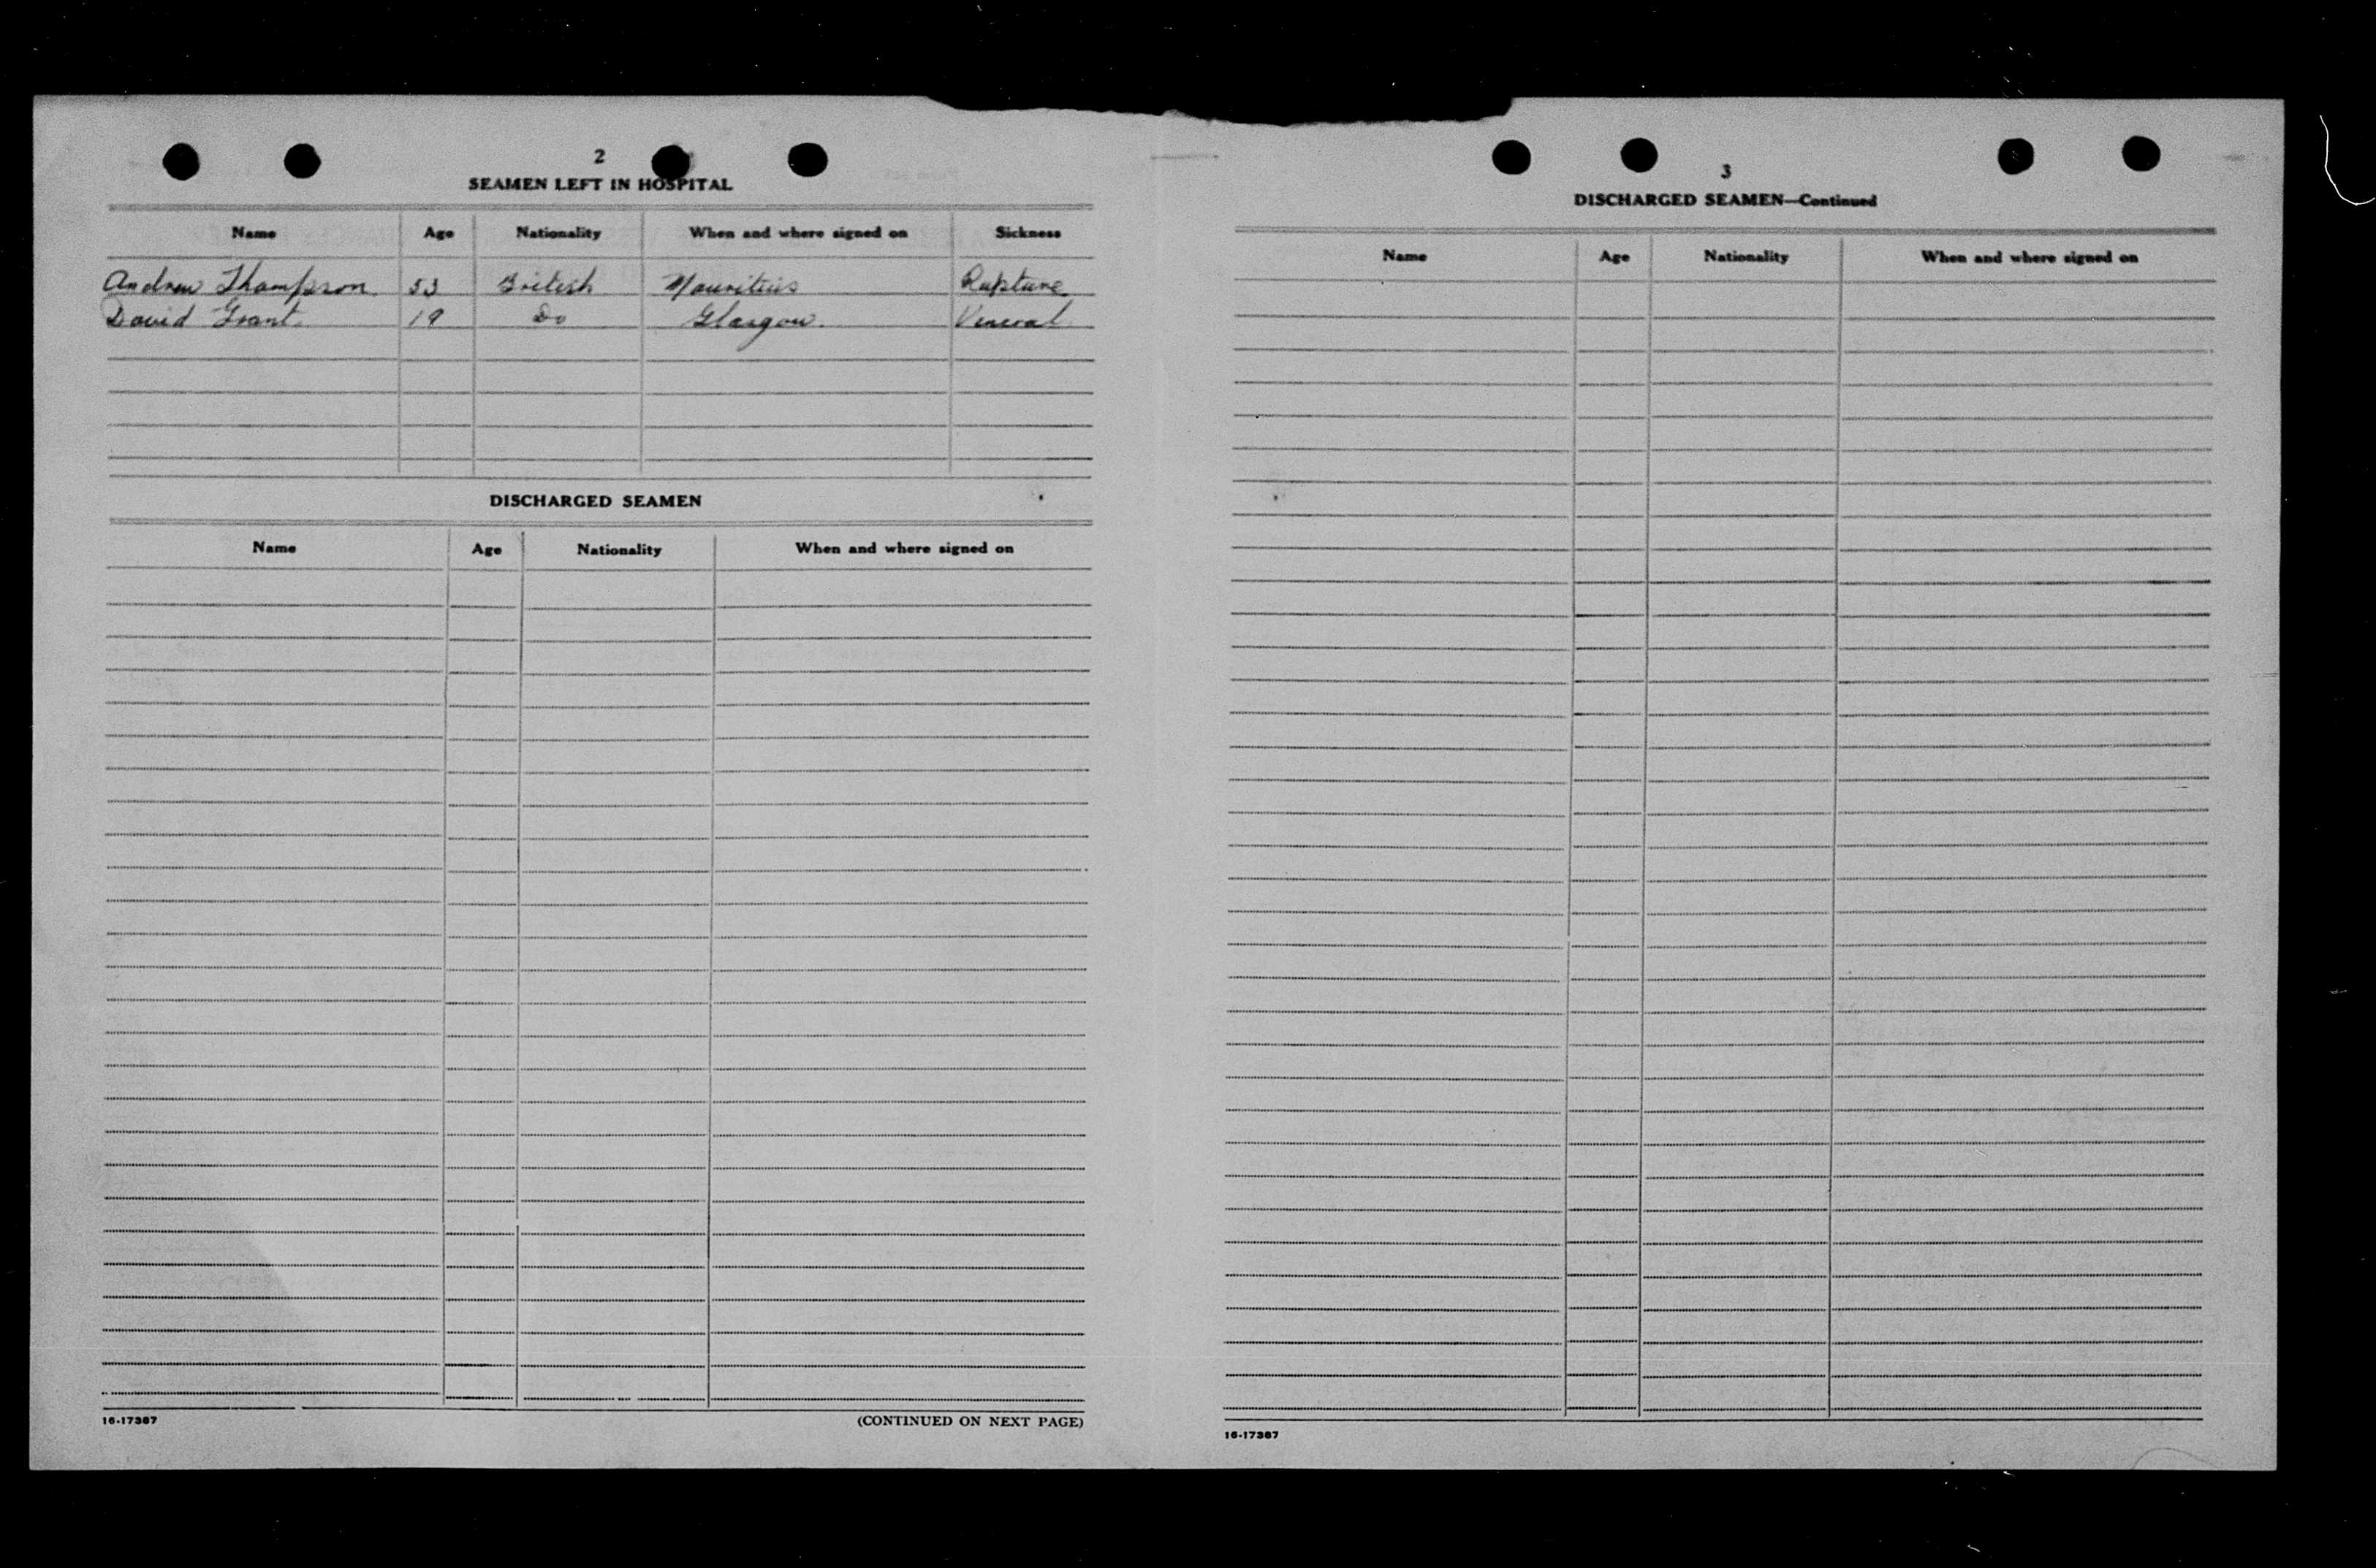 2
SEAMEN LEFT IN HOSPITAL
Name Age Nationality When and where signed on Sickness
Andrew Thompson 53 British Mauritius Rupture
David Grant. 19 Do Glasgow. Veneral
DISCHARGED SEAMEN
Name Age Nationality When and where signed on
16-17387
(CONTINUED ON NEXT PAGE)
3
DISCHARGED SEAMEN—Continued
Name Age Nationality When and where signed on
16-17387